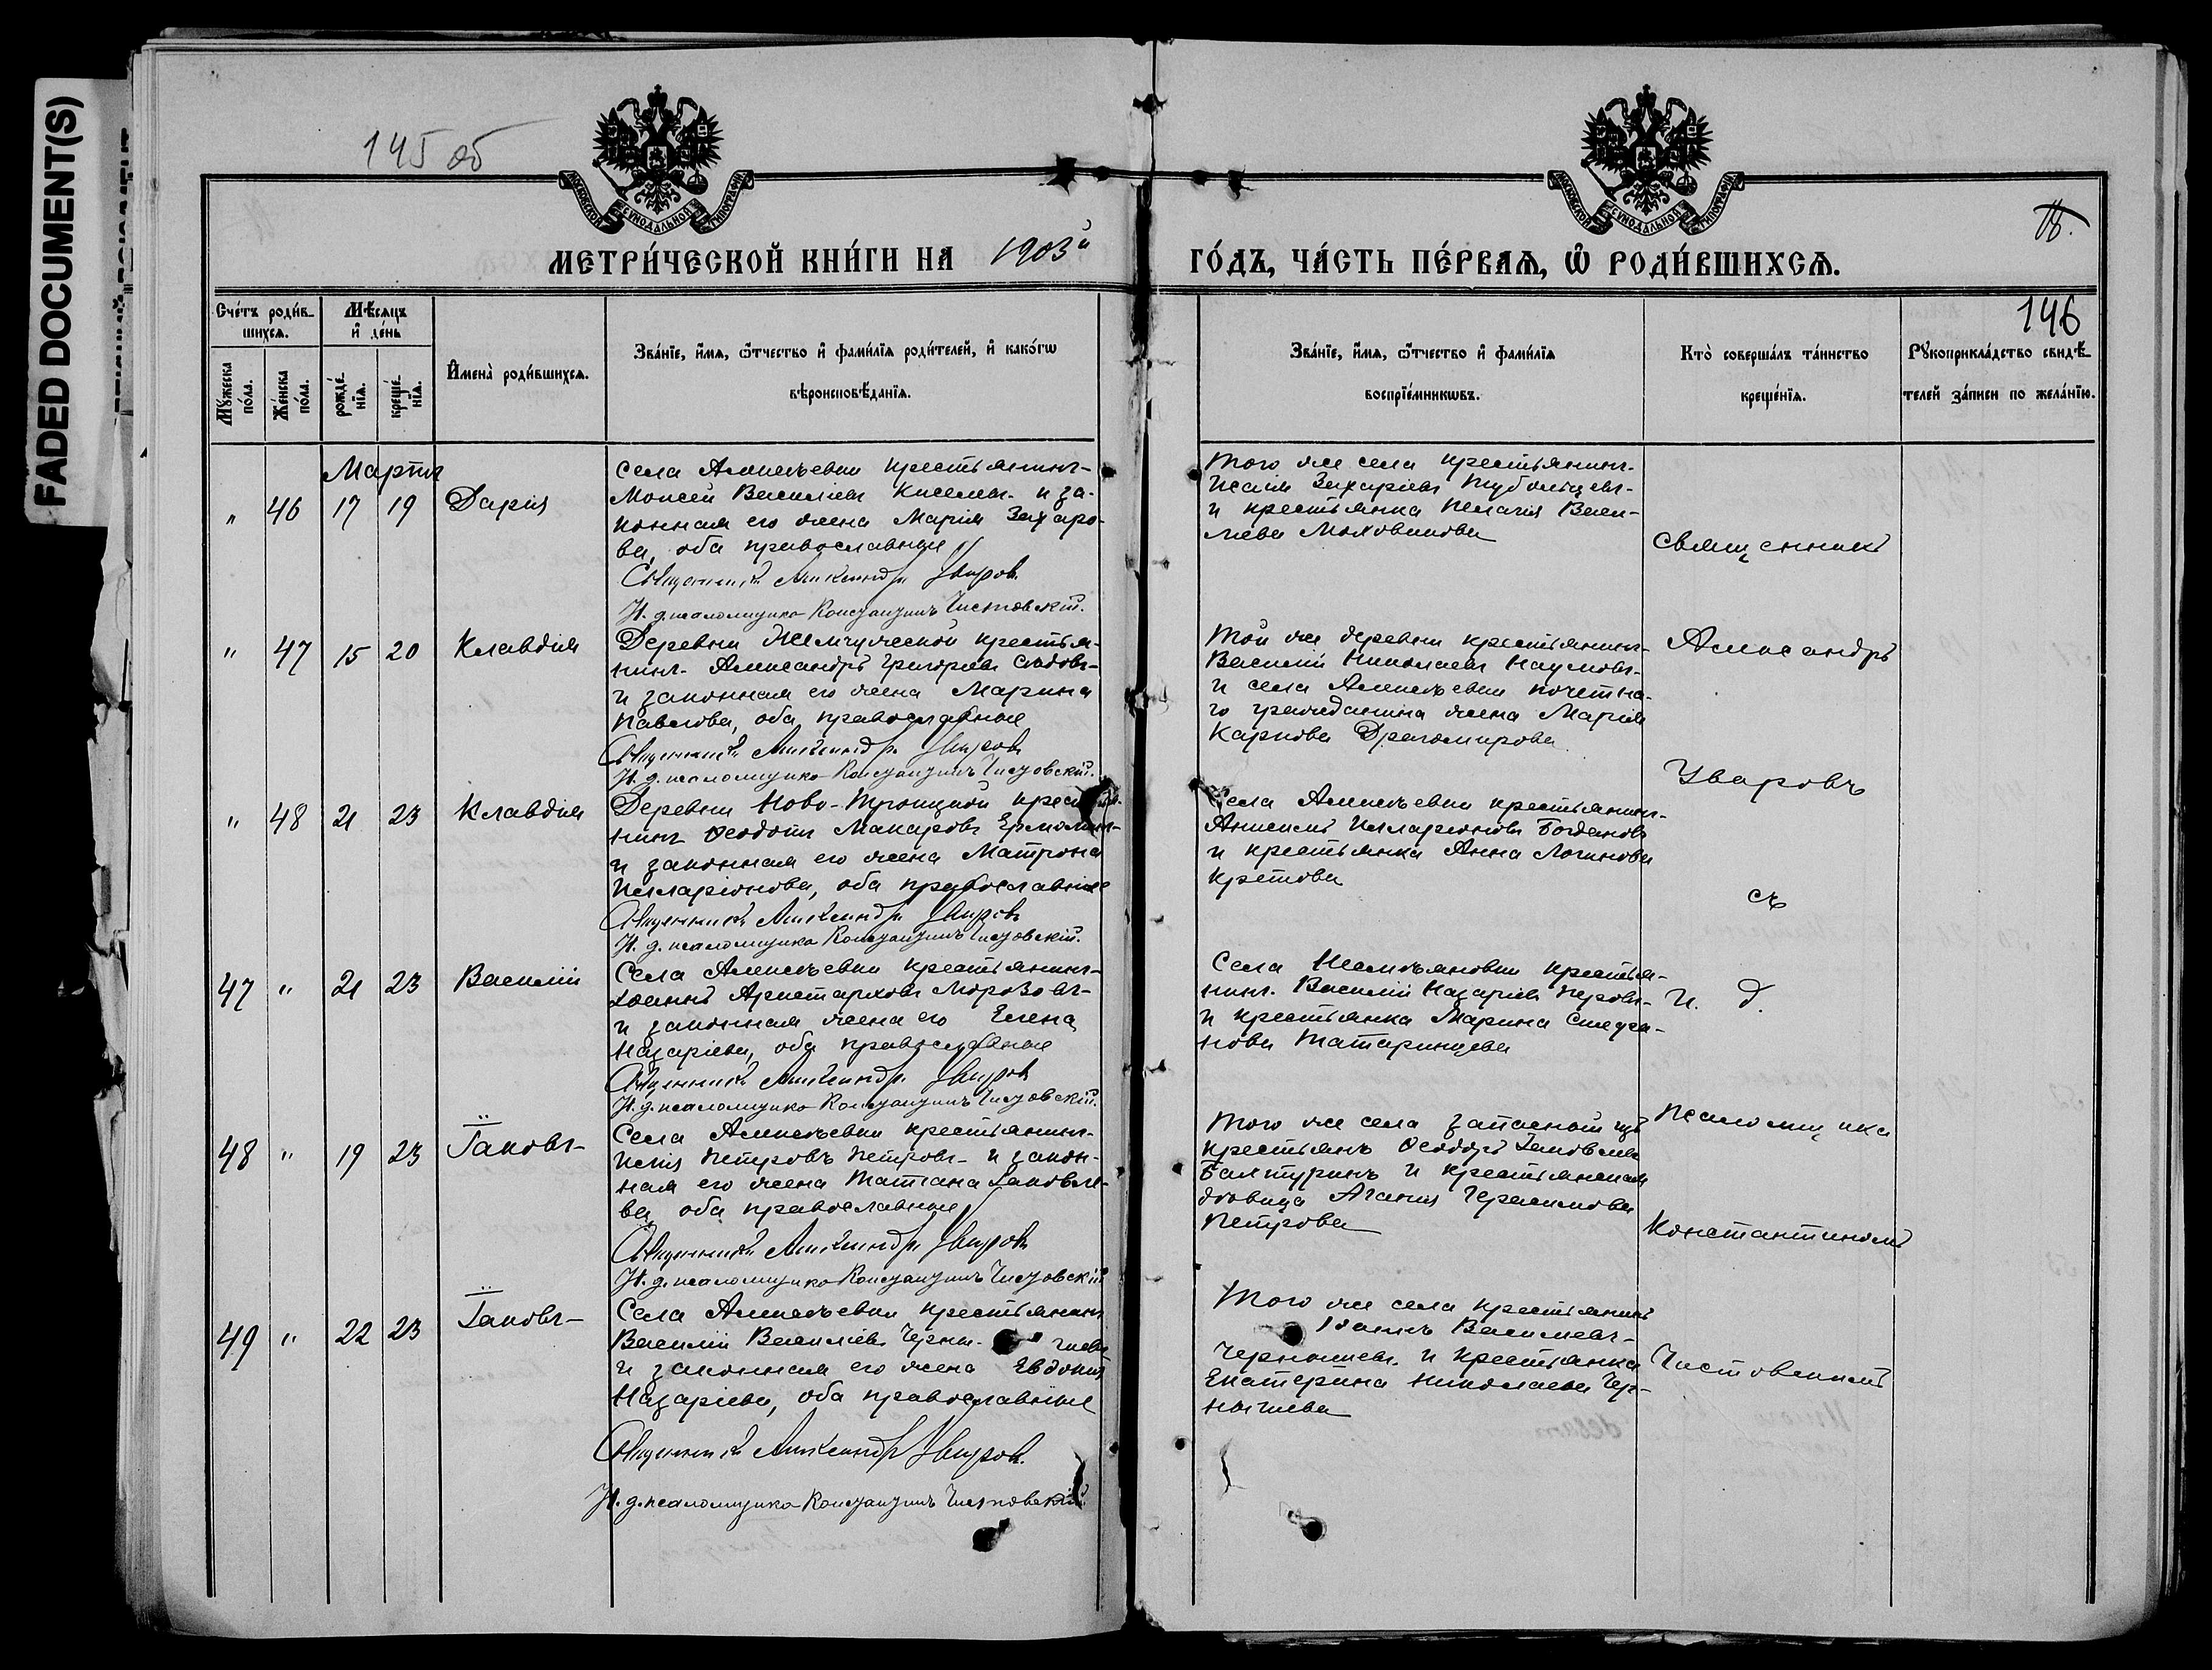 FADED DOCUMENT(S)
145 об
МОСКОВСКОЙ СѴНОДАЛЬНОЙ ТИПОГРАФІИ
МОСКОВСКОЙ СѴНОДАЛЬНОЙ ТИПОГРАФІИ
МЕТРИ́ЧЕСКОЙ КНИ́ГИ НА 1903й
ГО́ДЪ, ЧА́СТЬ ПЕ́РВАѦ, Ѡ РОДИ́ВШИХСѦ.
146
Сче́тъ роди́в-
шихсѧ.
Мѣ́сяцъ
и҆ де́нь
Мꙋжеска
по́ла.
Же́нска
по́ла.
рожде́-
нїѧ.
креще́-
нїѧ.
И҆мена̀ роди́вшихсѧ.
Зва́нїе, и҆́мѧ, ѻ҆́тчество и҆ фами́лїѧ роди́телей, и҆ како́гѡ
вѣроисповѣ́данїѧ.
Зва́нїе, и҆́мѧ, ѻ҆́тчество и҆ фами́лїѧ
воспрїе́мникѡвъ.
Кто̀ соверша́лъ та́инство
креще́нїѧ.
Рꙋкоприкла́дство свидѣ́-
телей за́писи по жела́нїю.
Марта
" 46 17 19 Дарія
Села Алексѣевки крестьянинъ
Моисей Васильевъ Киселевъ и за-
конная его жена Марія Захаро-
ва, оба православные
Священникъ Александръ Уваровъ
И. д. псаломщика Константинъ Чистовскій.
Того же села крестьянинъ
Исаія Захаріевъ
и крестьянка Пелагія Васи-
льева Моховикова
" 47 15 20 Клавдія
Деревни крестья-
нинъ Александръ Григорьевъ Сѣдовъ
и законная его жена Марина
Павлова, оба православные
Священникъ Александръ Уваровъ
И. д. псаломщика Константинъ Чистовскій.
Той же деревни крестьянинъ
Василій Николаевъ Наумовъ
и села Алексѣевки почетна-
го гражданина жена Марія
Карпова Драгомирова
" 48 21 23 Клавдія
Деревни Ново-Троицкой крестья-
нинъ Ѳеодотъ Макаровъ
и законная его жена Матрона
Илларіонова, оба православные
Священникъ Александръ Уваровъ
И. д. псаломщика Константинъ Чистовскій.
Села Алексѣевки крестьянинъ
Анисимъ Илларіоновъ Богдановъ
и крестьянка Анна Логинова
Кретова
47 " 21 23 Василій
Села Алексѣевки крестьянинъ
Іоаннъ Аристарховъ Морозовъ
и законная жена его Елена
Назаріева, оба православные
Священникъ Александръ Уваровъ
И. д. псаломщика Константинъ Чистовскій.
Села крестья-
нинъ Василій Назаріевъ Перовъ
и крестьянка Марина
Татаринцева
48 " 19 23 Іаковъ
Села Алексѣевки крестьянинъ
Петровъ Петровъ и закон-
ная его жена Татіана Іаковле-
ва, оба православные
Священникъ Александръ Уваровъ
И. д. псаломщика Константинъ Чистовскій
Того же села запасной изъ
крестьянъ Ѳеодоръ Іаковлевъ
Бахтуринъ и крестьянская
вдовица Агапія Герасимова
Петрова
49 " 22 23 Іаковъ
Села Алексѣевки крестьянинъ
Василій Васильевъ Черны- шевъ
и законная его жена Евдокія
Назаріева, оба православные
Священникъ Александръ Уваровъ.
И. д. псаломщика Константинъ Чистовскій.
Того же села крестьянинъ
Іоаннъ Васильевъ
Чернышевъ и крестьянка
Екатерина Николаева Чер-
нышева
Священникъ
Александръ
Уваровъ
съ
И. д.
псаломщика
Константиномъ
Чистовскимъ